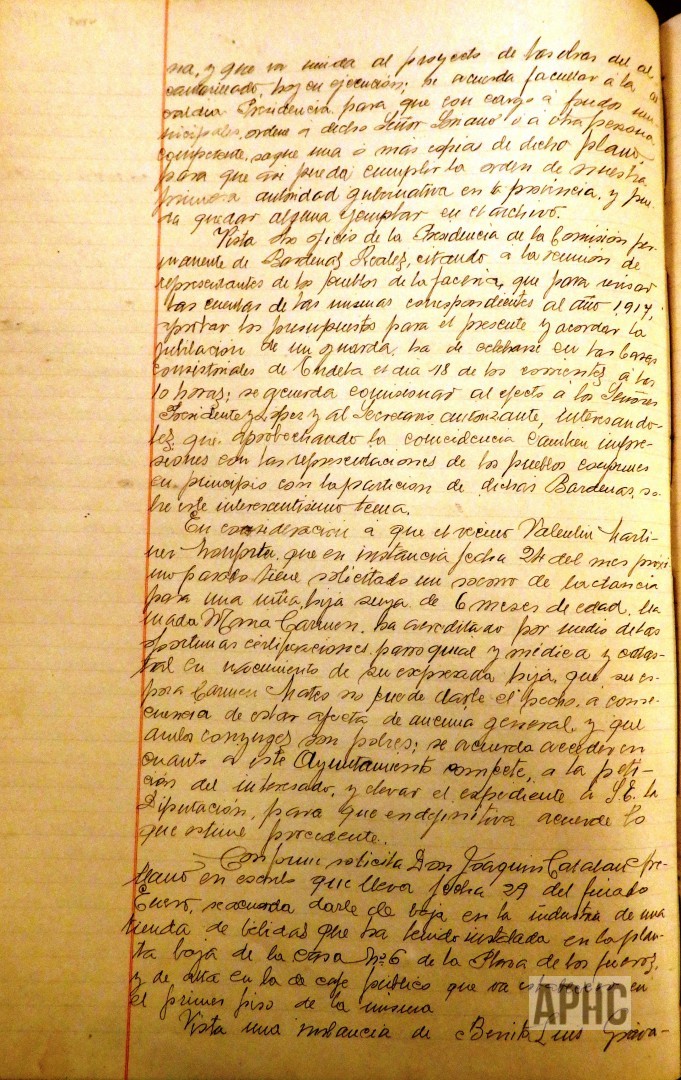 na, y que va unida al proyecto de las obras del al-
cantarillado, hoy en ejecución; se acuerda facultar a la
Presidencia para que con cargo a fondos mu-
nicipales, ordene a dicho Señor o a otra persona
competente, saque una o mas copia de dicho plano,
para que así pueda cumplir la orden de nuestra
primera autoridad gubernativa en la provincia, y pue-
da quedar algun ejemplar en el archivo.
Vista oficio de la Presidencia de la Comisión per-
manente de Bardenas Reales, citando a la reunion de
representantes de los pueblos de la facería, que para revisar
las cuentas de las mismas correspondientes al año 1.917,
aprobar los presupuestos para el presente y acordar la
jubilación de un guarda, ha de celebrarse en las Casas
consistoriales de Tudela el dia 18 de los corrientes a las
10 horas; se acuerda comisionar al efecto a los Señores
Presidente y Lopez y al Secretario autorizante, interesando-
les que aprobechando la coincidencia cambien impre-
siones con las representaciones de los pueblos conformes
en principio con la particion de dichas Bardenas, so-
bre este interesantisimo tema.
En consideración a que el vecino Valentin Marti-
nez que en instancia fecha 24 del mes proxi-
mo pasado tiene solicitado un socorro de lactancia
para una niña, hija suya de 6 meses de edad, lla-
mada Maria Carmen, ha acreditado por medio de las
oportunas certificaciones parroquial y médica y
en nacimiento de su expresada hija, que su es-
posa Carmen Mateo no puede darle el pecho, a conse-
cuencia de estar afecta de anemia general, y que
ambos conyuges son pobres; se acuerda acceder en
cuanto a este Ayuntamiento compete, a la peti-
ción del interesado, y elevar el expediente a S.E. la
Diputación, para que en definitiva acuerde lo
que estime procedente.
Conforme solicita Don Joaquin Catalan
en escrito que lleva fecha 29 del finado
Enero, se acuerda darle de baja en la industria de una
tienda de bebidas que ha tenido instalada en la plan-
ta baja de la casa Nº 6 de la Plaza de los fueros,
y de alta en la de café público que va en
el primer piso de la misma
Vista una instancia de Benita Luis
APHC